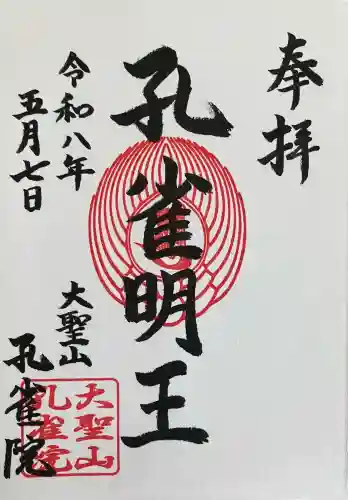 奉拝
孔雀明王
令和八年
五月七日
大聖山
孔雀院
大聖山
孔雀院